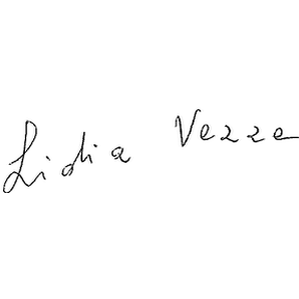 Lidia Vezze